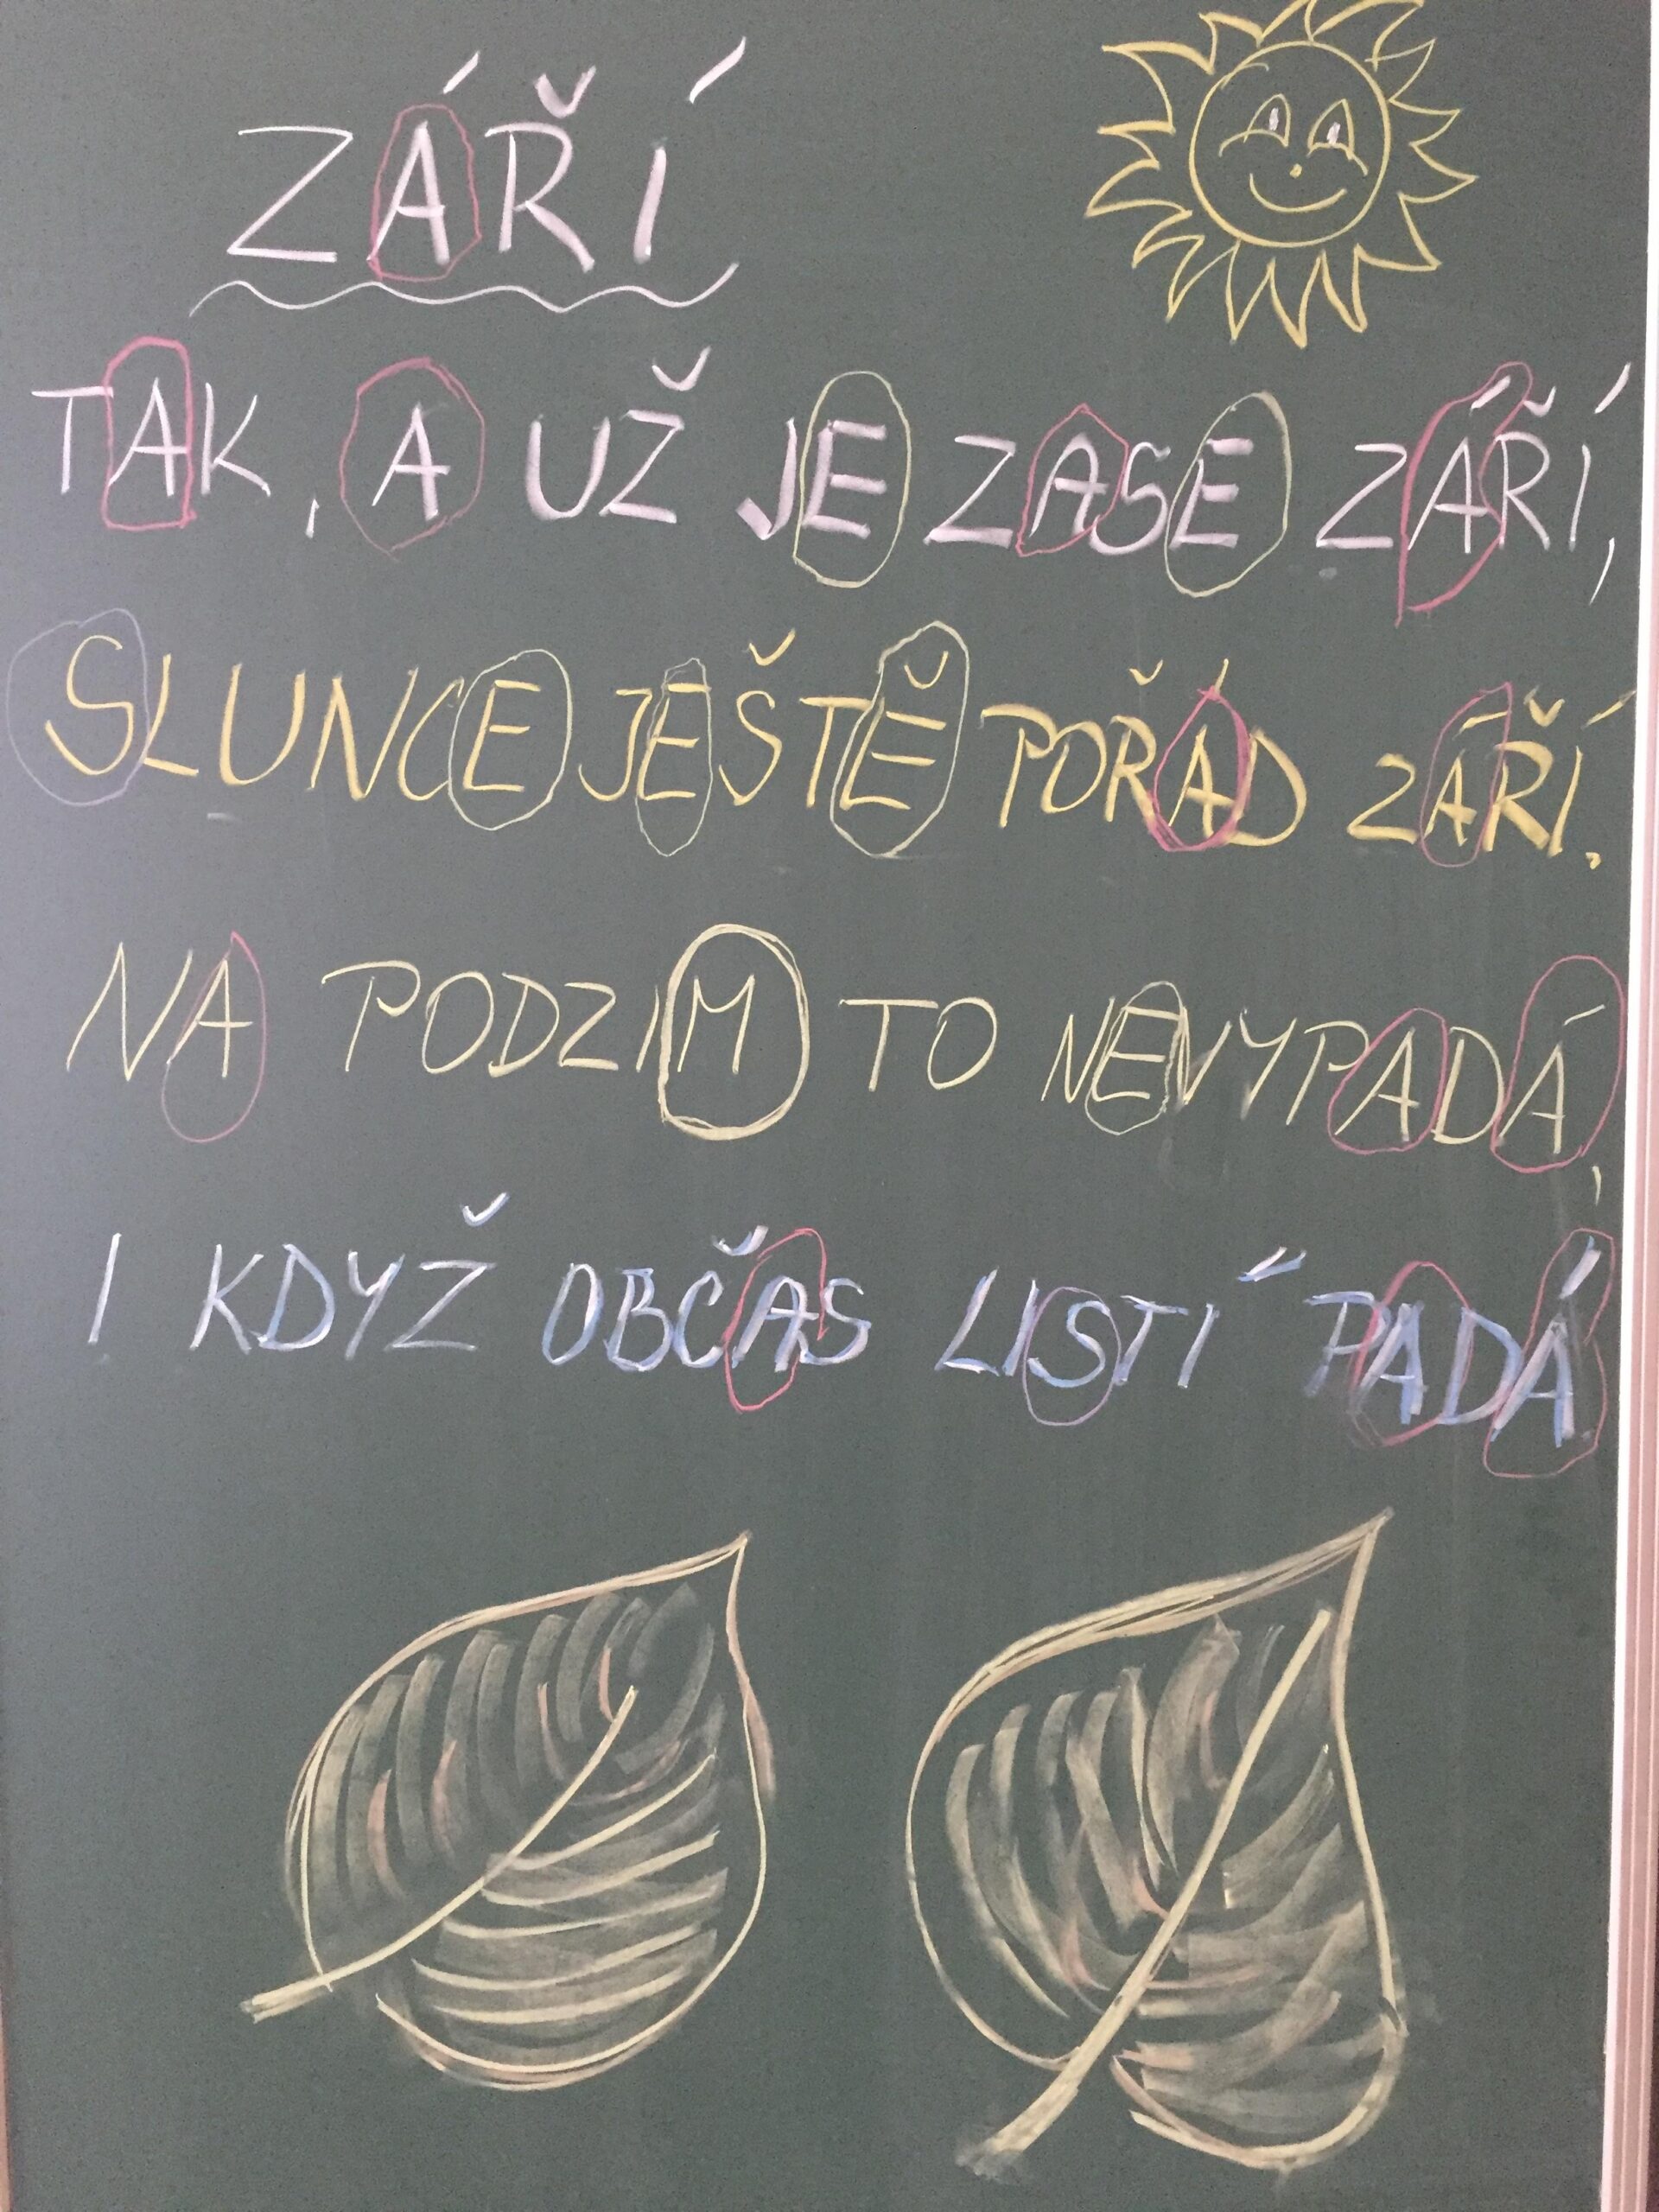 ZÁŘÍ
TAK, A UŽ JE ZASE ZÁŘÍ,
SLUNCE JEŠTĚ POŘÁD ZÁŘÍ.
NA PODZIM TO NEVYPADÁ,
I KDYŽ OBČAS LISTÍ PADÁ.